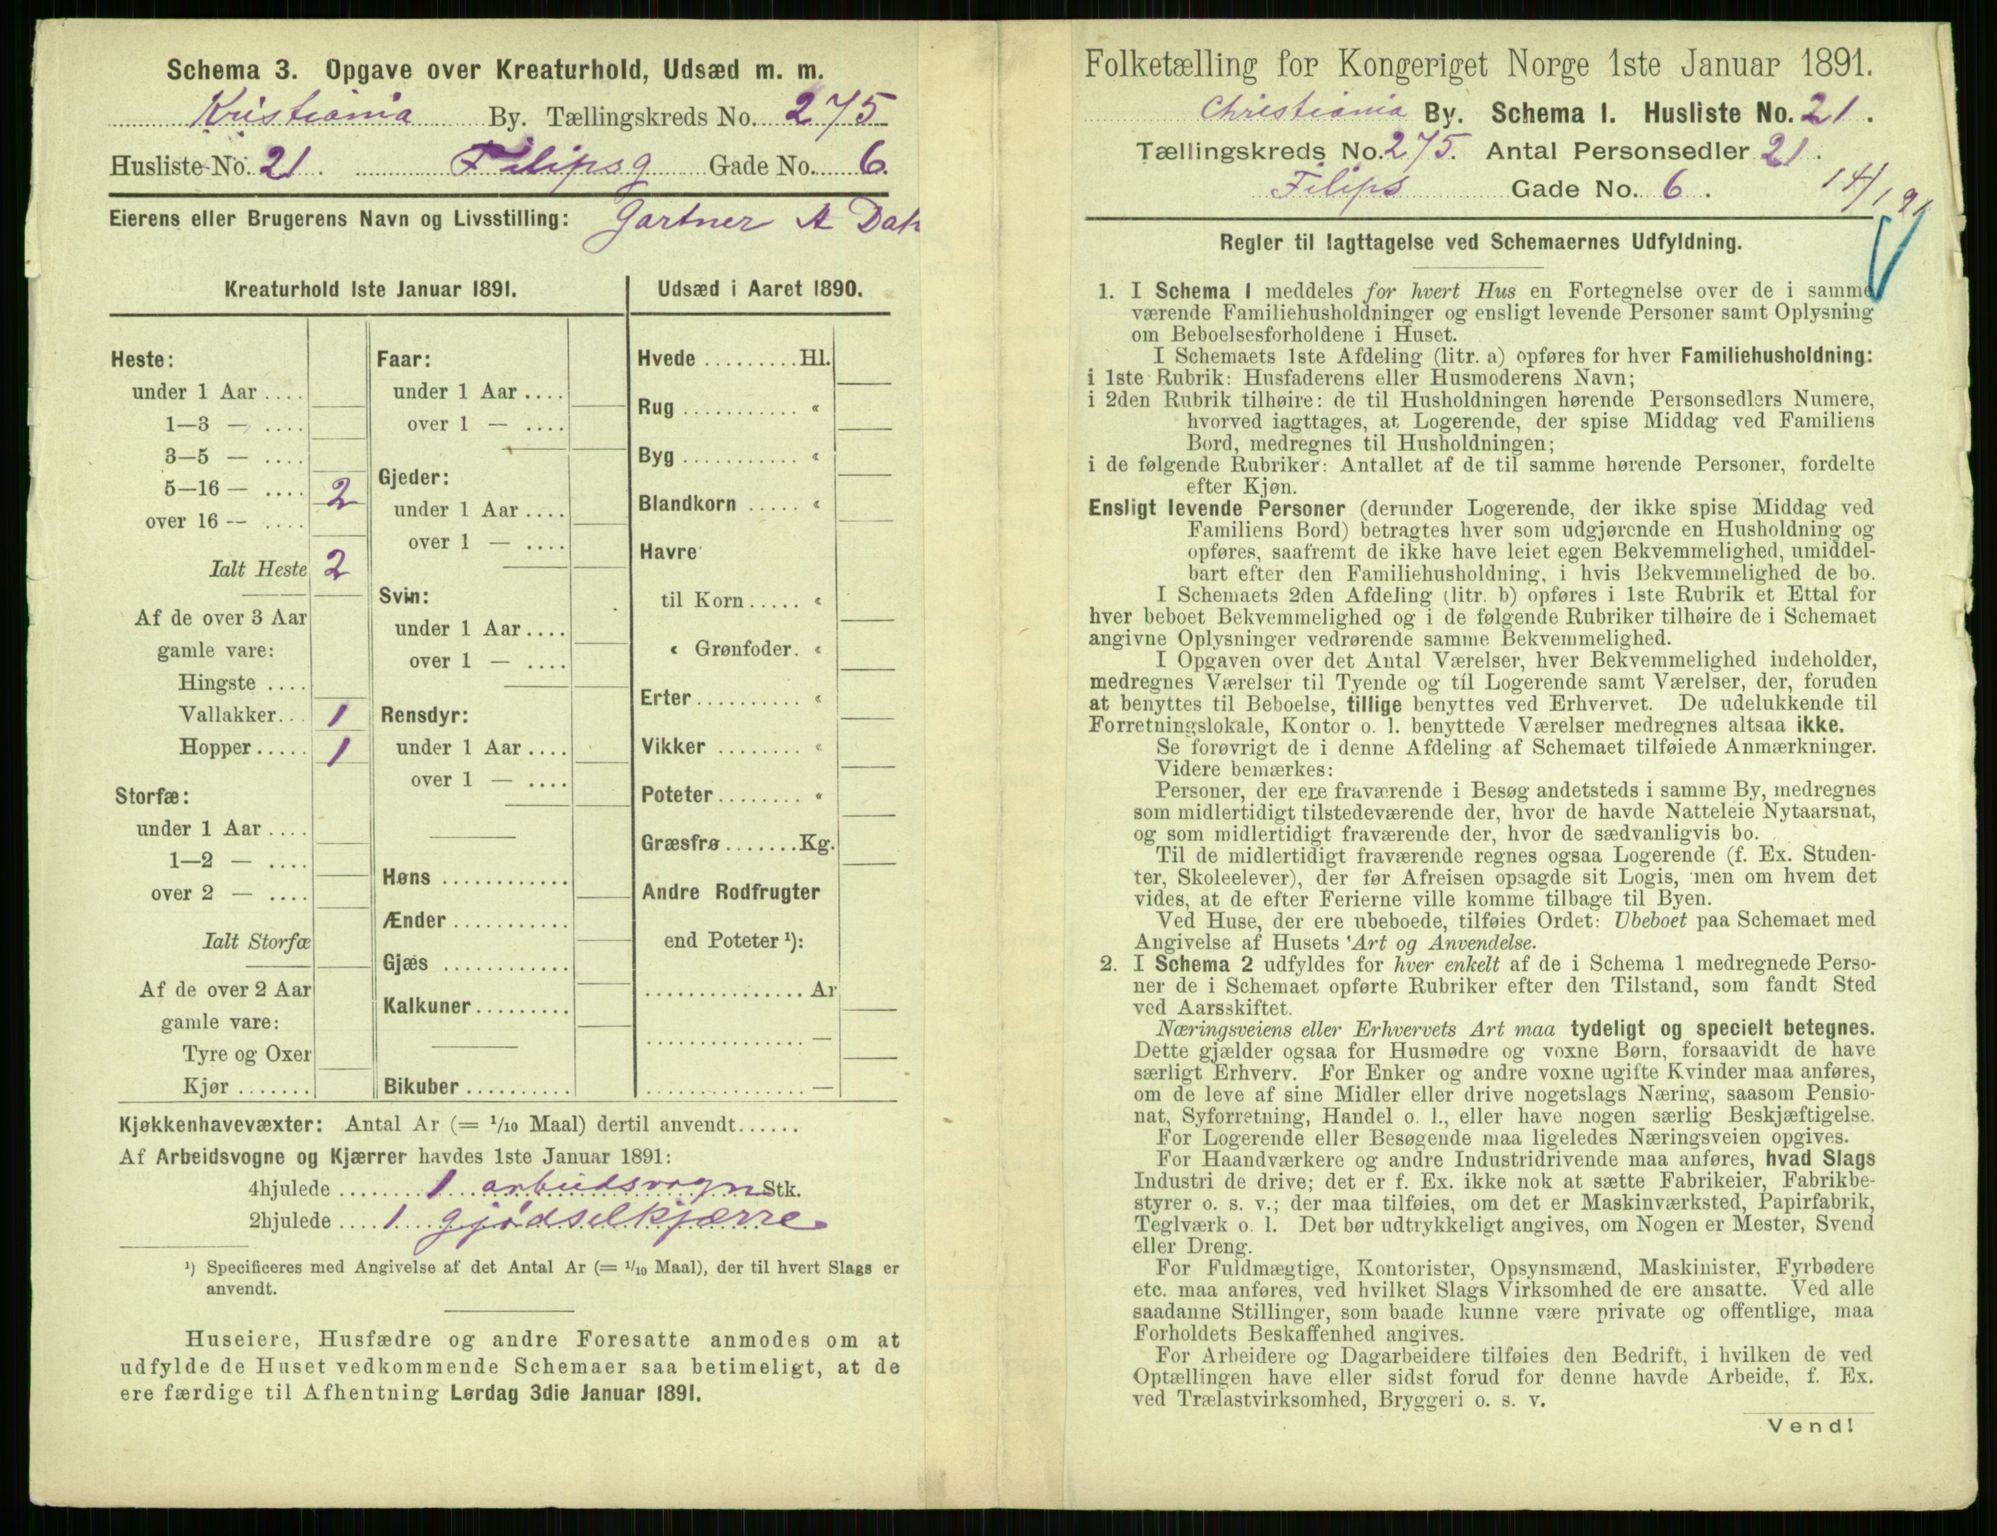 Schema 3. Opgave over Kreaturhold, Udsæd m. m.
Kristiania By. Tællingskreds No. 275
Husliste No. 21. Filipsg Gade No. 6.
Eierens eller Brugerens Navn og Livsstilling: Gartner A Dah
Kreaturhold 1ste Januar 1891.
Heste:
under 1 Aar ....
1—3 — ....
3—5 — ....
5—16 — .... 2
over 16 — ....
Ialt Heste 2
Af de over 3 Aar
gamle vare:
Hingste ....
Vallakker... 1
Hopper..... 1
Storfæ:
under 1 Aar ....
1—2 — ....
over 2 — ....
Ialt Storfæ
Af de over 2 Aar
gamle vare:
Tyre og Oxer
Kjør .......
Faar:
under 1 Aar ....
over 1 — ....
Gjeder:
under 1 Aar ....
over 1 — ....
Svin:
under 1 Aar ....
over 1 — ....
Rensdyr:
under 1 Aar ....
over 1 — ....
Høns ............
Ænder ...........
Gjæs ............
Kalkuner.........
Bikuber ..........
Udsæd i Aaret 1890.
Hvede .........Hl.
Rug ........... «
Byg ........... «
Blandkorn ..... «
Havre
til Korn ..... «
« Grønfoder. «
Erter .......... «
Vikker ......... «
Poteter ........ «
Græsfrø .......Kg.
Andre Rodfrugter
end Poteter ¹):
............... Ar
............... —
............... —
Kjøkkenhavevæxter: Antal Ar (= 1/10 Maal) dertil anvendt......
Af Arbeidsvogne og Kjærrer havdes 1ste Januar 1891:
4hjulede ........ 1 arbeidsvogn Stk.
2hjulede .... 1 gjødselkjærre
¹) Specificeres med Angivelse af det Antal Ar (= 1/10 Maal), der til hvert Slags er
anvendt.
Huseiere, Husfædre og andre Foresatte anmodes om at
udfylde de Huset vedkommende Schemaer saa betimeligt, at de
ere færdige til Afhentning Lørdag 3die Januar 1891.
Folketælling for Kongeriget Norge 1ste Januar 1891.
Christiania By. Schema I. Husliste No. 21.
Tællingskreds No. 275. Antal Personsedler 21.
Filips Gade No. 6. 14/1 91
Regler til Iagttagelse ved Schemaernes Udfyldning.
1. I Schema 1 meddeles for hvert Hus en Fortegnelse over de i samme
værende Familiehusholdninger og ensligt levende Personer samt Oplysning
om Beboelsesforholdene i Huset.
I Schemaets 1ste Afdeling (litr. a) opføres for hver Familiehusholdning:
i 1ste Rubrik: Husfaderens eller Husmoderens Navn;
i 2den Rubrik tilhøire: de til Husholdningen hørende Personsedlers Numere,
hvorved iagttages, at Logerende, der spise Middag ved Familiens
Bord, medregnes til Husholdningen;
i de følgende Rubriker: Antallet af de til samme hørende Personer, fordelte
efter Kjøn.
Ensligt levende Personer (derunder Logerende, der ikke spise Middag ved
Familiens Bord) betragtes hver som udgjørende en Husholdning og
opføres, saafremt de ikke have leiet egen Bekvemmelighed, umiddel-
bart efter den Familiehusholdning, i hvis Bekvemmelighed de bo.
I Schemaets 2den Afdeling (litr. b) opføres i 1ste Rubrik et Ettal for
hver beboet Bekvemmelighed og i de følgende Rubriker tilhøire de i Schemaet
angivne Oplysninger vedrørende samme Bekvemmelighed.
I Opgaven over det Antal Værelser, hver Bekvemmelighed indeholder,
medregnes Værelser til Tyende og til Logerende samt Værelser, der, foruden
at benyttes til Beboelse, tillige benyttes ved Erhvervet. De udelukkende til
Forretningslokale, Kontor o. l. benyttede Værelser medregnes altsaa ikke.
Se forøvrigt de i denne Afdeling af Schemaet tilføiede Anmærkninger.
Videre bemærkes:
Personer, der ere fraværende i Besøg andetsteds i samme By, medregnes
som midlertidigt tilstedeværende der, hvor de havde Natteleie Nytaarsnat,
og som midlertidigt fraværende der, hvor de sædvanligvis bo.
Til de midlertidigt fraværende regnes ogsaa Logerende (f. Ex. Studen-
ter, Skoleelever), der før Afreisen opsagde sit Logis, men om hvem det
vides, at de efter Ferierne ville komme tilbage til Byen.
Ved Huse, der ere ubeboede, tilføies Ordet: Ubeboet paa Schemaet med
Angivelse af Husets Art og Anvendelse.
2. I Schema 2 udfyldes for hver enkelt af de i Schema 1 medregnede Perso-
ner de i Schemaet opførte Rubriker efter den Tilstand, som fandt Sted
ved Aarsskiftet.
Næringsveiens eller Erhvervets Art maa tydeligt og specielt betegnes.
Dette gjælder ogsaa for Husmødre og voxne Børn, forsaavidt de have
særligt Erhverv. For Enker og andre voxne ugifte Kvinder maa anføres,
om de leve af sine Midler eller drive nogetslags Næring, saasom Pensio-
nat, Syforretning, Handel o. l., eller have nogen særlig Beskjæftigelse.
For Logerende eller Besøgende maa ligeledes Næringsveien opgives.
For Haandværkere og andre Industridrivende maa anføres, hvad Slags
Industri de drive; det er f. Ex. ikke nok at sætte Fabrikeier, Fabrikbe-
styrer o. s. v.; der maa tilføies, om det er Maskinværksted, Papirfabrik,
Teglværk o. l. Det bør udtrykkeligt angives, om Nogen er Mester, Svend
eller Dreng.
For Fuldmægtige, Kontorister, Opsynsmænd, Maskinister, Fyrbødere
etc. maa anføres, ved hvilket Slags Virksomhed de ere ansatte. Ved alle
saadanne Stillinger, som baade kunne være private og offentlige, maa
Forholdets Beskaffenhed angives.
For Arbeidere og Dagarbeidere tilføies den Bedrift, i hvilken de ved
Optællingen have eller sidst forud for denne havde Arbeide, f. Ex.
ved Trælastvirksomhed, Bryggeri o. s. v.
Vend!